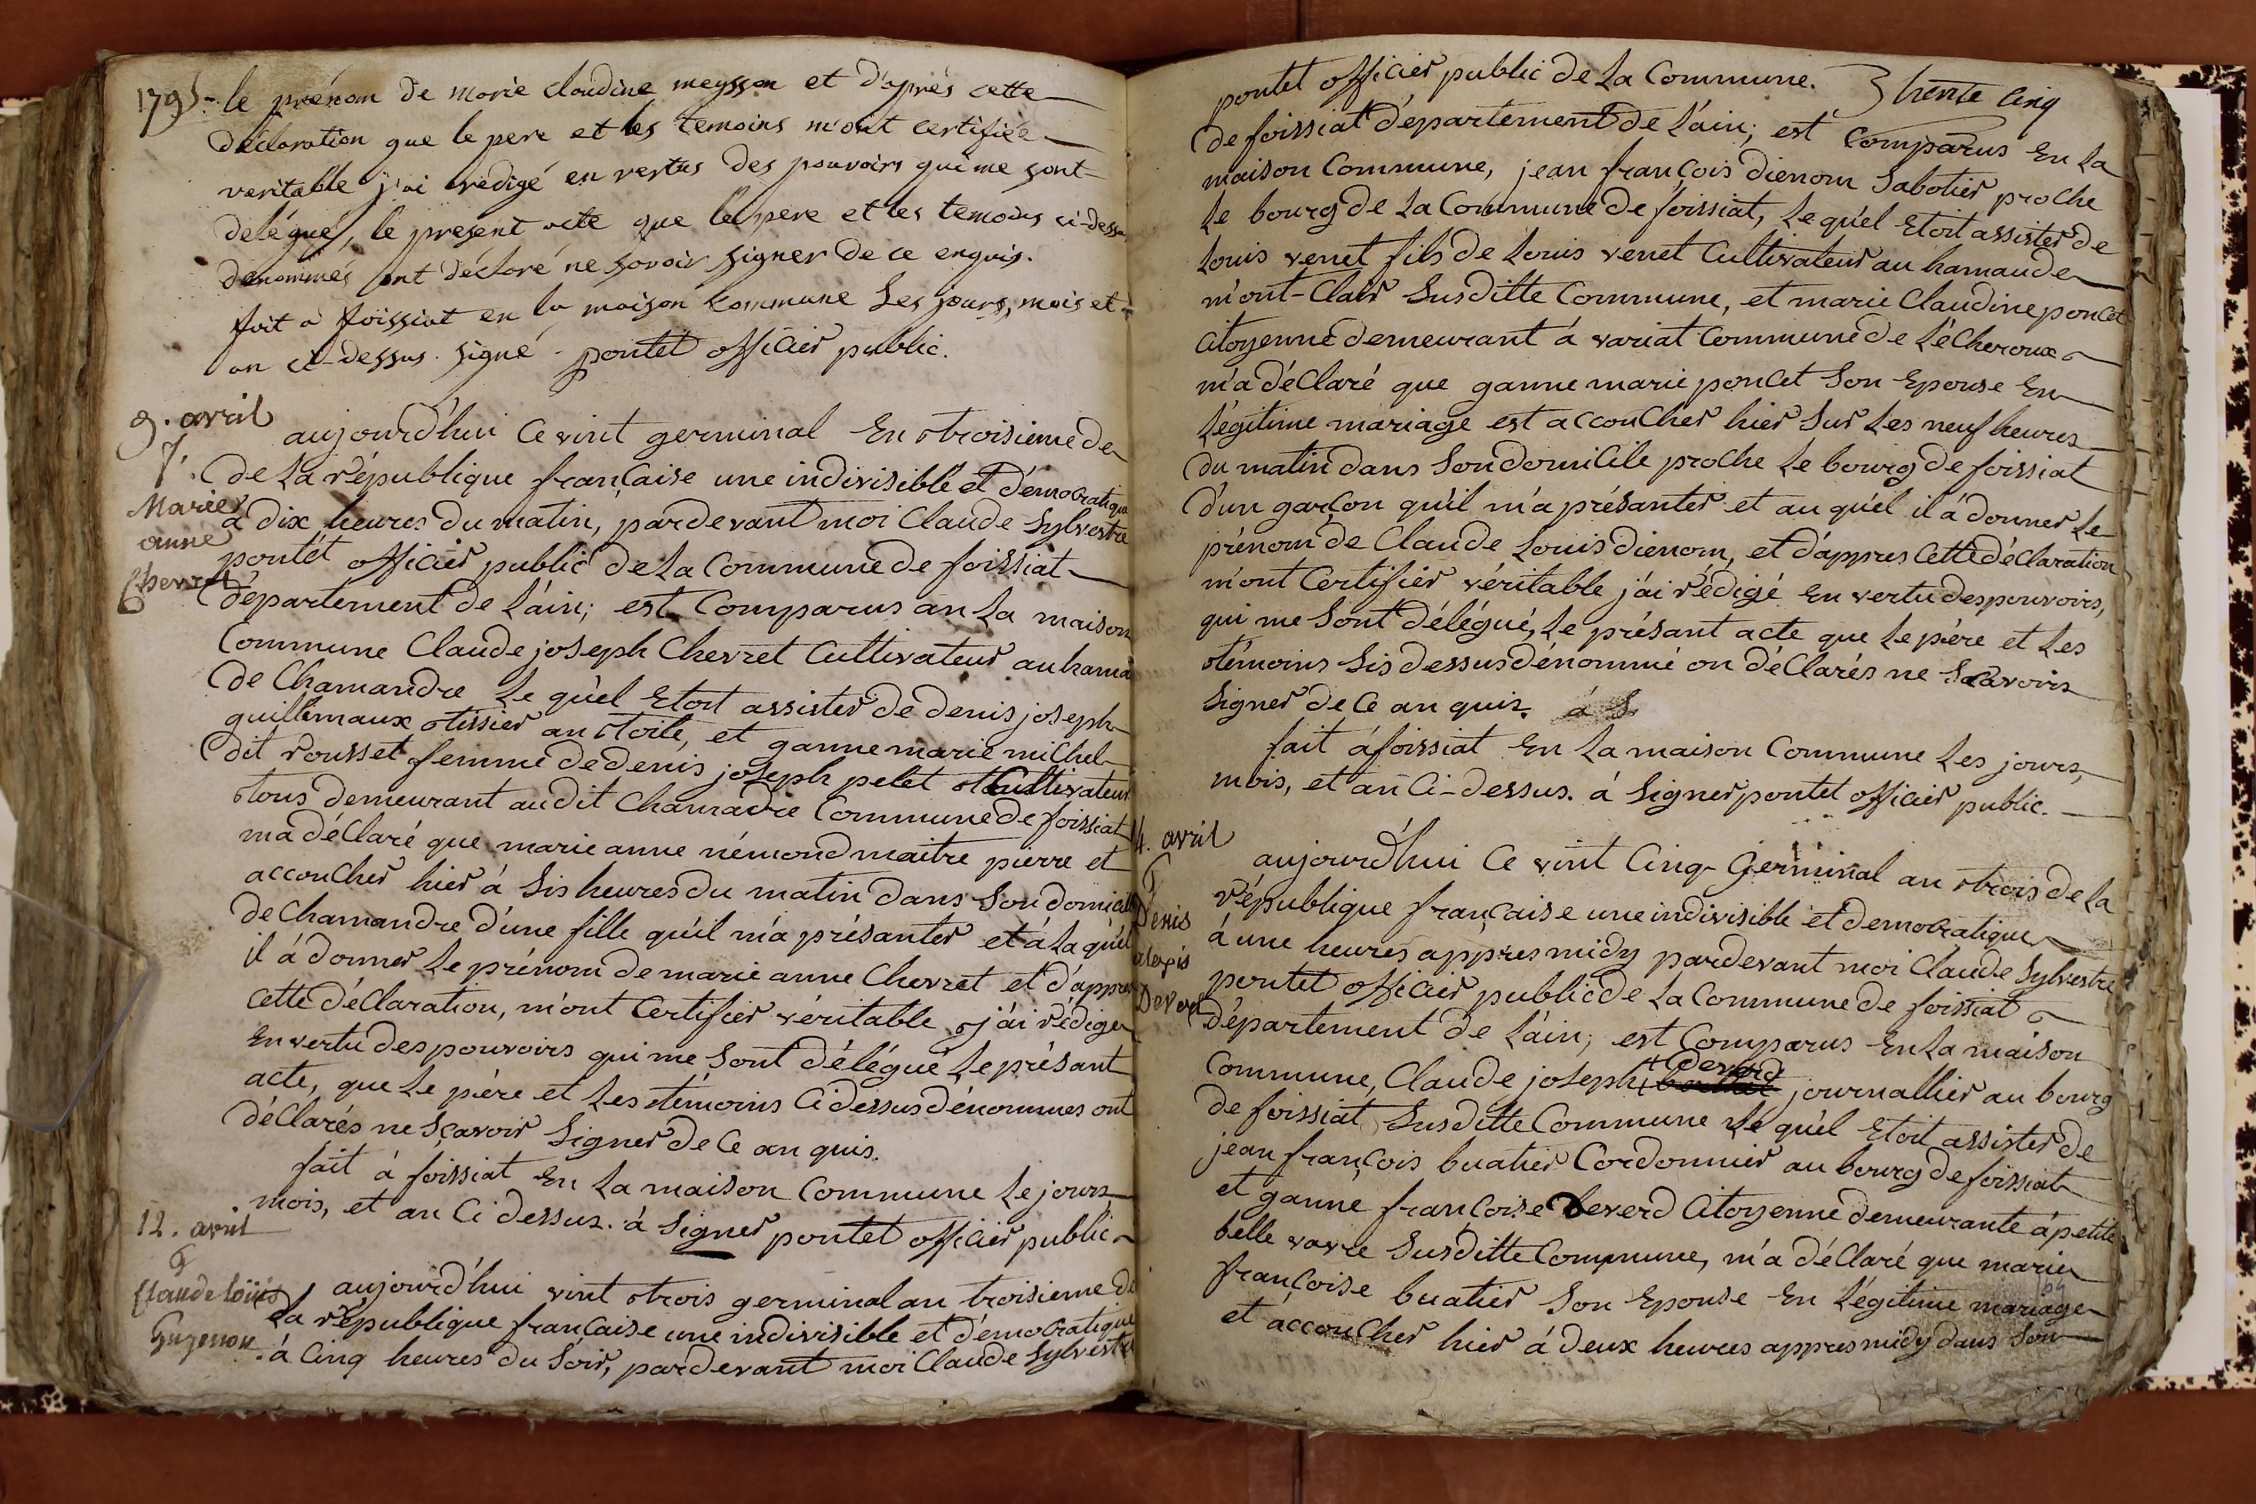 1795 - le prénom de marie claudine meysson et d'après cette
déclaration que le pere et les temoins m'ont certifiée
veritable j'ai redigé en vertus des pouvoirs qui me sont
délégué, le present acte que le pere et les temoins ci-dessu
dénommés ont déclaré ne savoir signer de ce enquis.
fait a foissiat en la maison commune les jours, mois et
an ci-dessus. signé - pontet officier public.
9. avril
Marie
anne
Chevret
aujourd'hui ce vint germinal En troisieme de
de La république française une indivisible et démocratique
a dix heures du matin, pardevant moi Claude Sylvestre
pontet officier public de La Commune de foissiat
département de L'ain; est Comparus an La maison
Commune Claude joseph Chevret Cultivateur au hama
de Chamandre Le qu'el Etoit assister de denis joseph
guillemaux tissier an toile, et ganne marie michel
dit rousset femme de denis joseph pelet Cultivateur
tous demeurant audit Chamadre Commune de foissiat
ma déClaré que marie anne némond maitre pierre et
accouCher hier à Sis heures du matin dans Son domicile
de Chamandre d'une fille qu'il m'a présanter et à La qu'el
il à donner Le prénom de marie anne Chevret et d'appres
Cette déClaration, m'ont Certifier véritable j'ai rédiger
En vertu des pouvoirs qui me Sont délégué Le présant
acte, que Le père et Les témoins Ci dessus dénommes ont
déClarés ne Sçavoir Signer de Ce an quis.
fait à foissiat En La maison Commune Le jours
mois, et an Ci dessus. à Signer pontet officier public
12. avril
Claude loüis
Guyenon
aujourd'hui vint trois germinal an troisieme de
La république française une indivisible et démocratique
à Cinq heures du Soir, pardevant moi Claude Sylvestre
trente cinq
pontet officier public de La Commune.
de foissiat département de L'ain; est Comparus En La
maison Commune, jean françois dienom Sabotier proche
Le bourg de La Commune de foissiat, Le qu'el Etoit assister de
Louis venet fils de Louis venet Cultivateur au hamaude
m'ont-Clair Susditte Commune, et marie Claudine poncet
Citoyenne demeurant à variat Commune de L'éCheroux
m'a déClaré que ganne marie poncet Son Epouse En
Légitime mariage est accouCher hier Sur Les neuf heures
du matin dans Son domiCile proChe Le bourg de foissiat
d'un garçon qu'il m'a présanter et au qu'el il à donner Le
prénom de Claude Louis dienom, et d'appres Cette déClaration
m'ont Certifier véritable j'ai rédigé En vertu des pouvoirs,
qui me Sont délégué, Le présant acte que Le père et Les
témoins Sis dessus dénommé on déClarés ne Scavoirs
Signer de Ce an quis. à S
fait à foissiat En La maison Commune Les jours,
mois, et an Ci-dessus. à Signer pontet officier public.
14. avril
Denis
alexis
Deverd
aujourd'hui Ce vint Cinq Germinal an trois de La
république française une indivisible et democratique
à une heures appres midy pardevant moi Claude Sylvestre
pontet officier public de La Commune de foissiat
département de L'ain; est Comparus En La maison
Commune, Claude joseph + deverd journallier au bourg
de foissiat Susditte Commune Le qu'el Etoit assister de
jean françois buatier Cordonnier au bourg de foissiat
et ganne françoise Deverd Citoyenne demeurante à petite
belle vavre Susditte Commune, m'a déClaré que marie
françoise buatier Son Epouse En Légitime mariage
et accouCher hier à deux heures appres midy dans Son